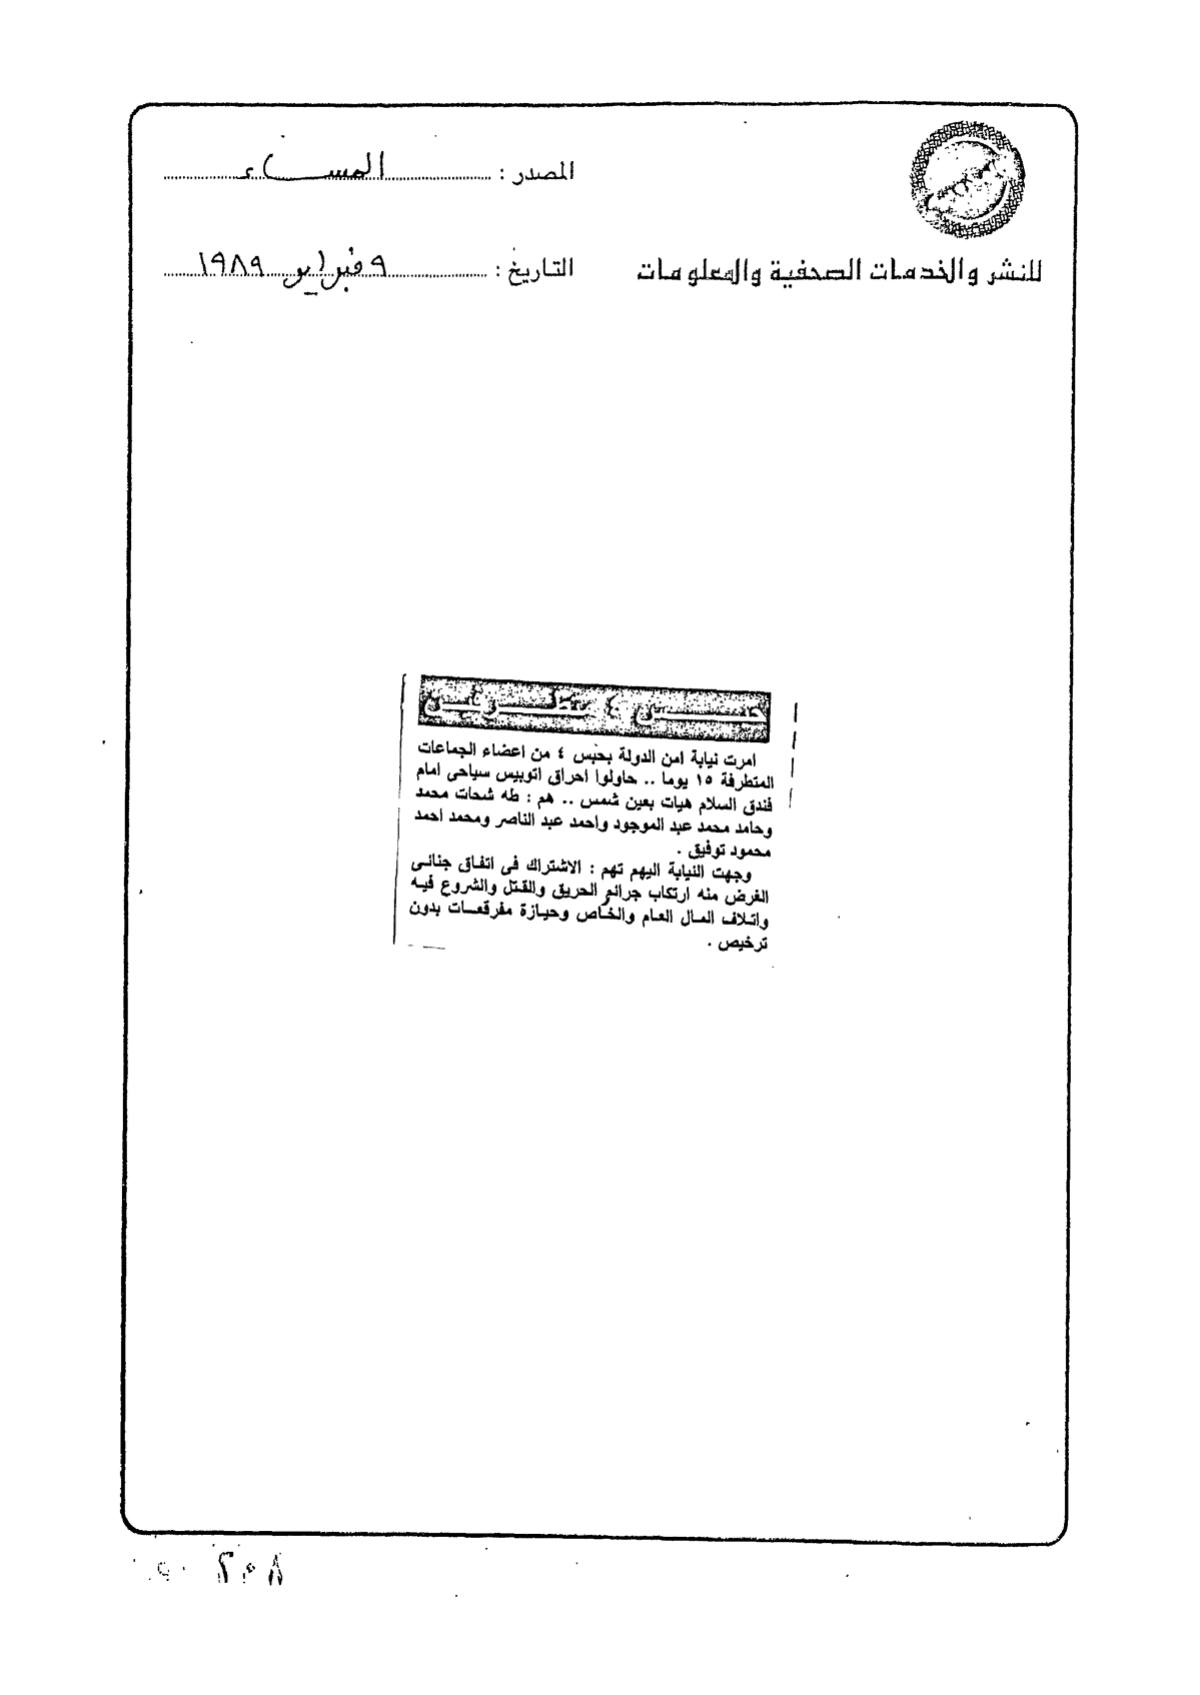 المصدر : المساء
للنشر والخدمات الصحفية والمعلومات
التاريخ : ٩ فبراير ١٩٨٩
حبس ٤ متطرفين
امرت نيابة امن الدولة بحبس ٤ من اعضاء الجماعات
المتطرفة ١٥ يوما .. حاولوا احراق اتوبيس سياحى امام
فندق السلام هيات بعين شمس .. هم : طه شحات محمد
وحامد محمد عبد الموجود واحمد عبد الناصر ومحمد احمد
محمود توفيق .
وجهت النيابة اليهم تهم : الاشتراك فى اتفاق جنائى
الغرض منه ارتكاب جرائم الحريق والقتل والشروع فيه
واتلاف المال العام والخاص وحيازة مفرقعات بدون
ترخيص .